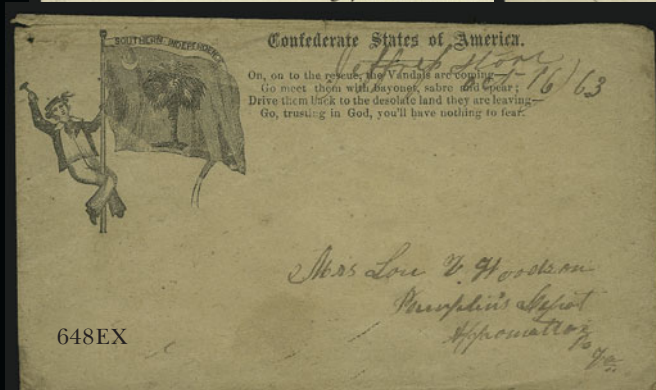 SOUTHERN INDEPENDENCE
Confederate States of America.
On, on to the rescue, the Vandals are coming—
Go meet them with bayonet, sabre and spear;
Drive them back to the desolate land they are leaving—
Go, trusting in God, you'll have nothing to fear.
Store
Oct 16/63
Mrs Lou V. Woodson
Pamplin's Depot
Appomattox
Co
Va
648EX